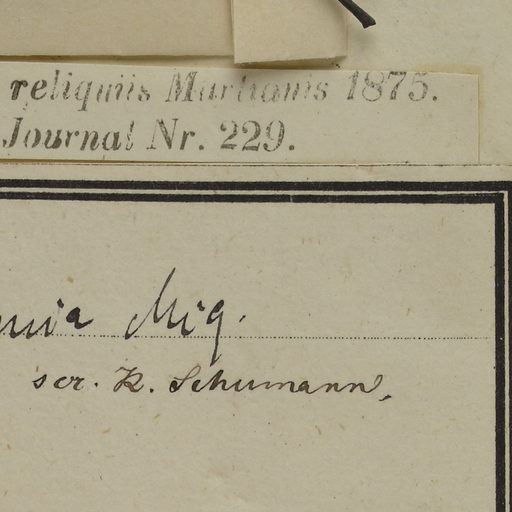 reliquiis Martianis 1875.
Journal Nr. 229.
Miq.
scr. K. Schumann,